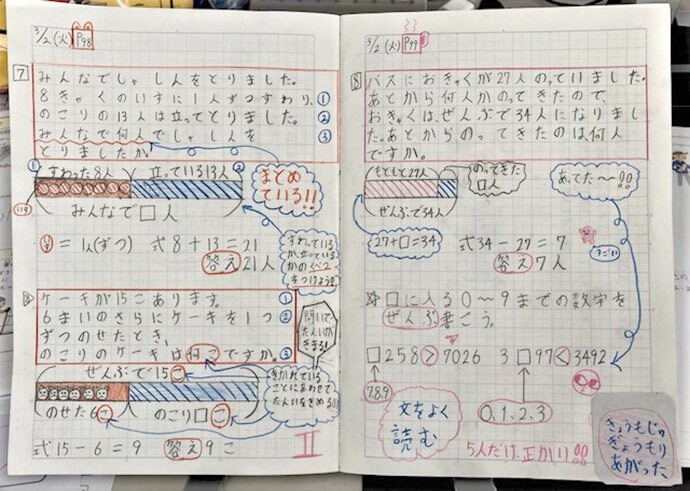 3/2(火) P98
7
みんなでしゃしんをとりました。
8きゃくのいすに1人ずつすわり、①
のこりの13人は立ってとりました。②
みんなで何人でしゃしんを ③
とりましたか。
① すわった8人 立っている13人 ②
みんなで□人
まとめ
ている!!
= 1人(ずつ) 式 8+13=21
答え 21人
すわっている
か、立っている
かの
8
ケーキが15こあります。①
6まいのさらにケーキを1つ ②
ずつのせたとき、
のこりのケーキは何こですか。③
問いで
たんいが
きまる!!
ぜんぶで15こ
のせた6こ のこり□こ
きかれている
ことにあわせて
たんいをきめる!!
式 15-6=9 答え 9こ
3/2(火) P99
8
バスにおきゃくが27人のっていました。
あとから何人かのってきたので、
おきゃくは、ぜんぶで34人になりまし
た。あとからのってきたのは、何人
ですか。
もともと27人
のってきた
□人
ぜんぶで34人
27+□=34
あってた〜!!
式 34-27=7
答え 7人
すごい
☆□に入る0〜9までの数字を
ぜんぶ書こう。
□258>7026 3□97<3492
7.8.9
0.1.2.3
文をよく
読む
5人だけ正かい!!
きょうもじゅ
ぎょうもり
あがった